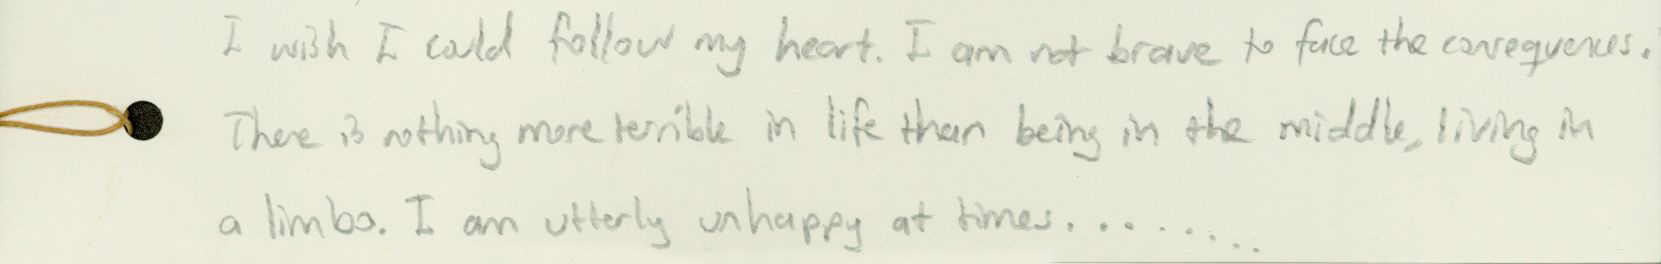 I wish I could follow my heart. I am not brave to face the consequences.
There is nothing more terrible in life than being in the middle, living in
a limbo. I am utterly unhappy at times.........